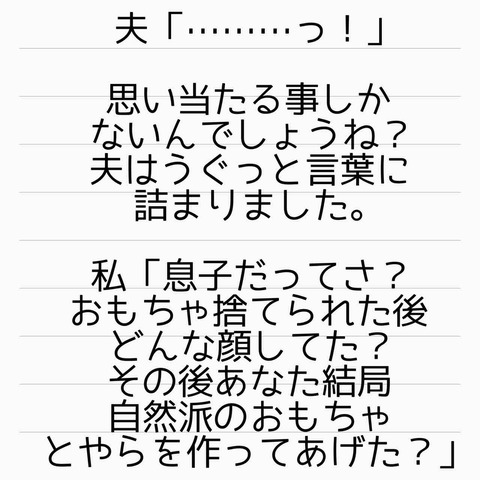 夫「………っ！」
思い当たる事しか
ないんでしょうね？
夫はうぐっと言葉に
詰まりました。
私「息子だってさ？
おもちゃ捨てられた後
どんな顔してた？
その後あなた結局
自然派のおもちゃ
とやらを作ってあげた？」